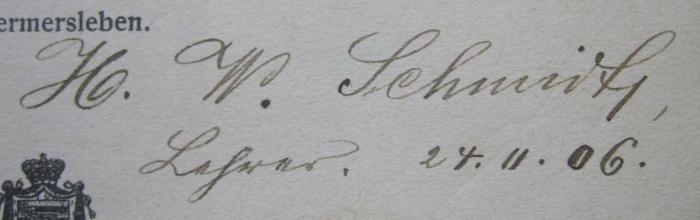 ermersleben.
H. W. Schmidt,
Lehrer. 24. 11. 06.